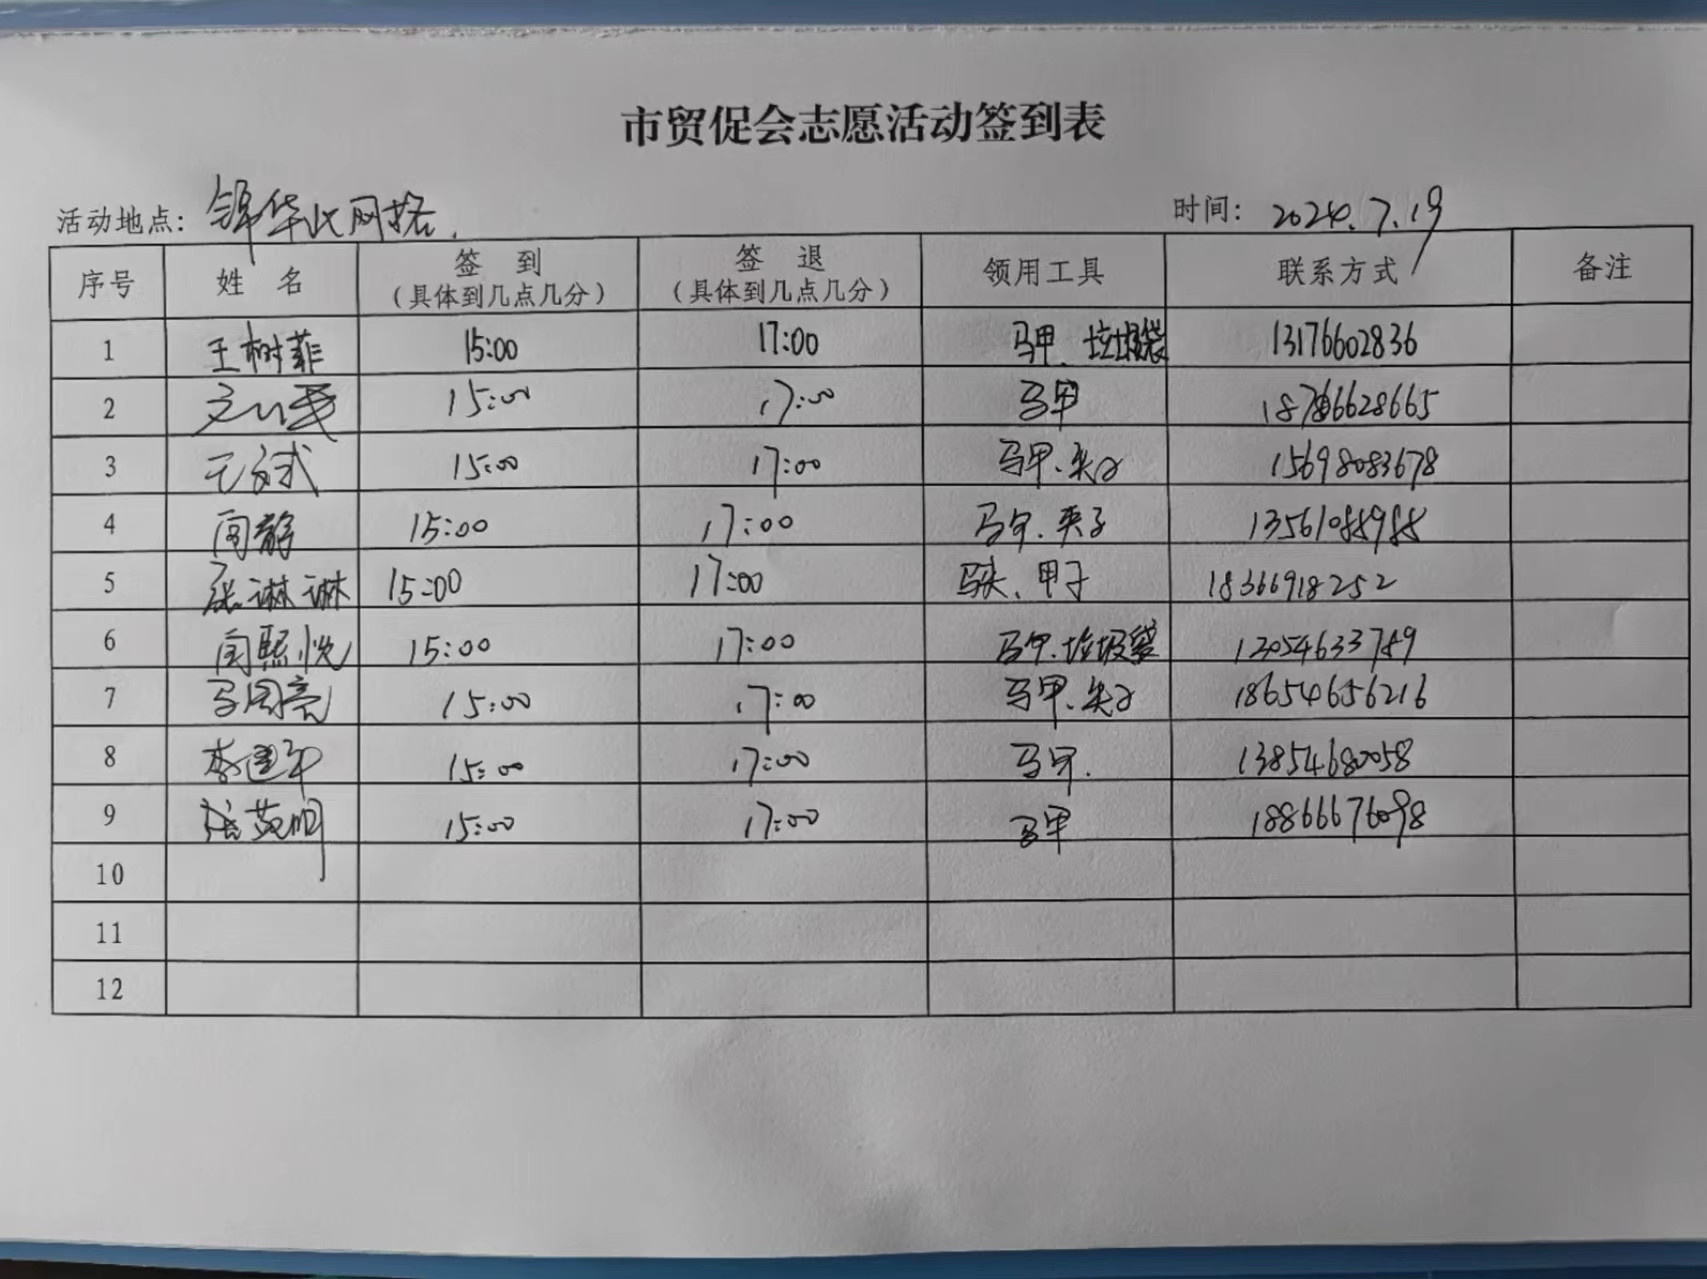 市贸促会志愿活动签到表
活动地点: 锦华北网格. 时间: 2024.7.19
序号 姓 名 签 到 (具体到几点几分) 签 退 (具体到几点几分) 领用工具 联系方式 备注
1 王树菲 15:00 17:00 马甲、垃圾袋 13176602836
2 15:00 17:00 马甲 6628665
3 15:00 17:00 马甲、夹子 15698083678
4 闫静 15:00 17:00 马甲、夹子 13561088988
5 张琳琳 15:00 17:00 马夹、甲子 18366918252
6 闫熙悦 15:00 17:00 马甲、垃圾袋
7 马国亮 15:00 17:00 马甲、夹子 18654656216
8 李建军 15:00 17:00 马甲. 13854680058
9 15:00 17:00 马甲 18866676098
10
11
12